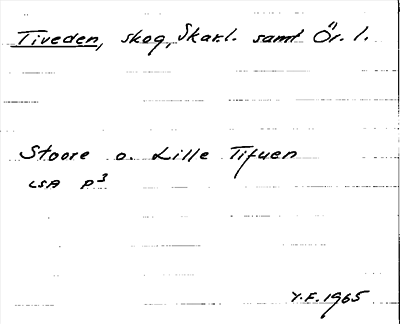 Tiveden, skog, Skarl. samt Ör. l.
Stoore o. Lille Tifuen
LSA P³
Y.F. 1965